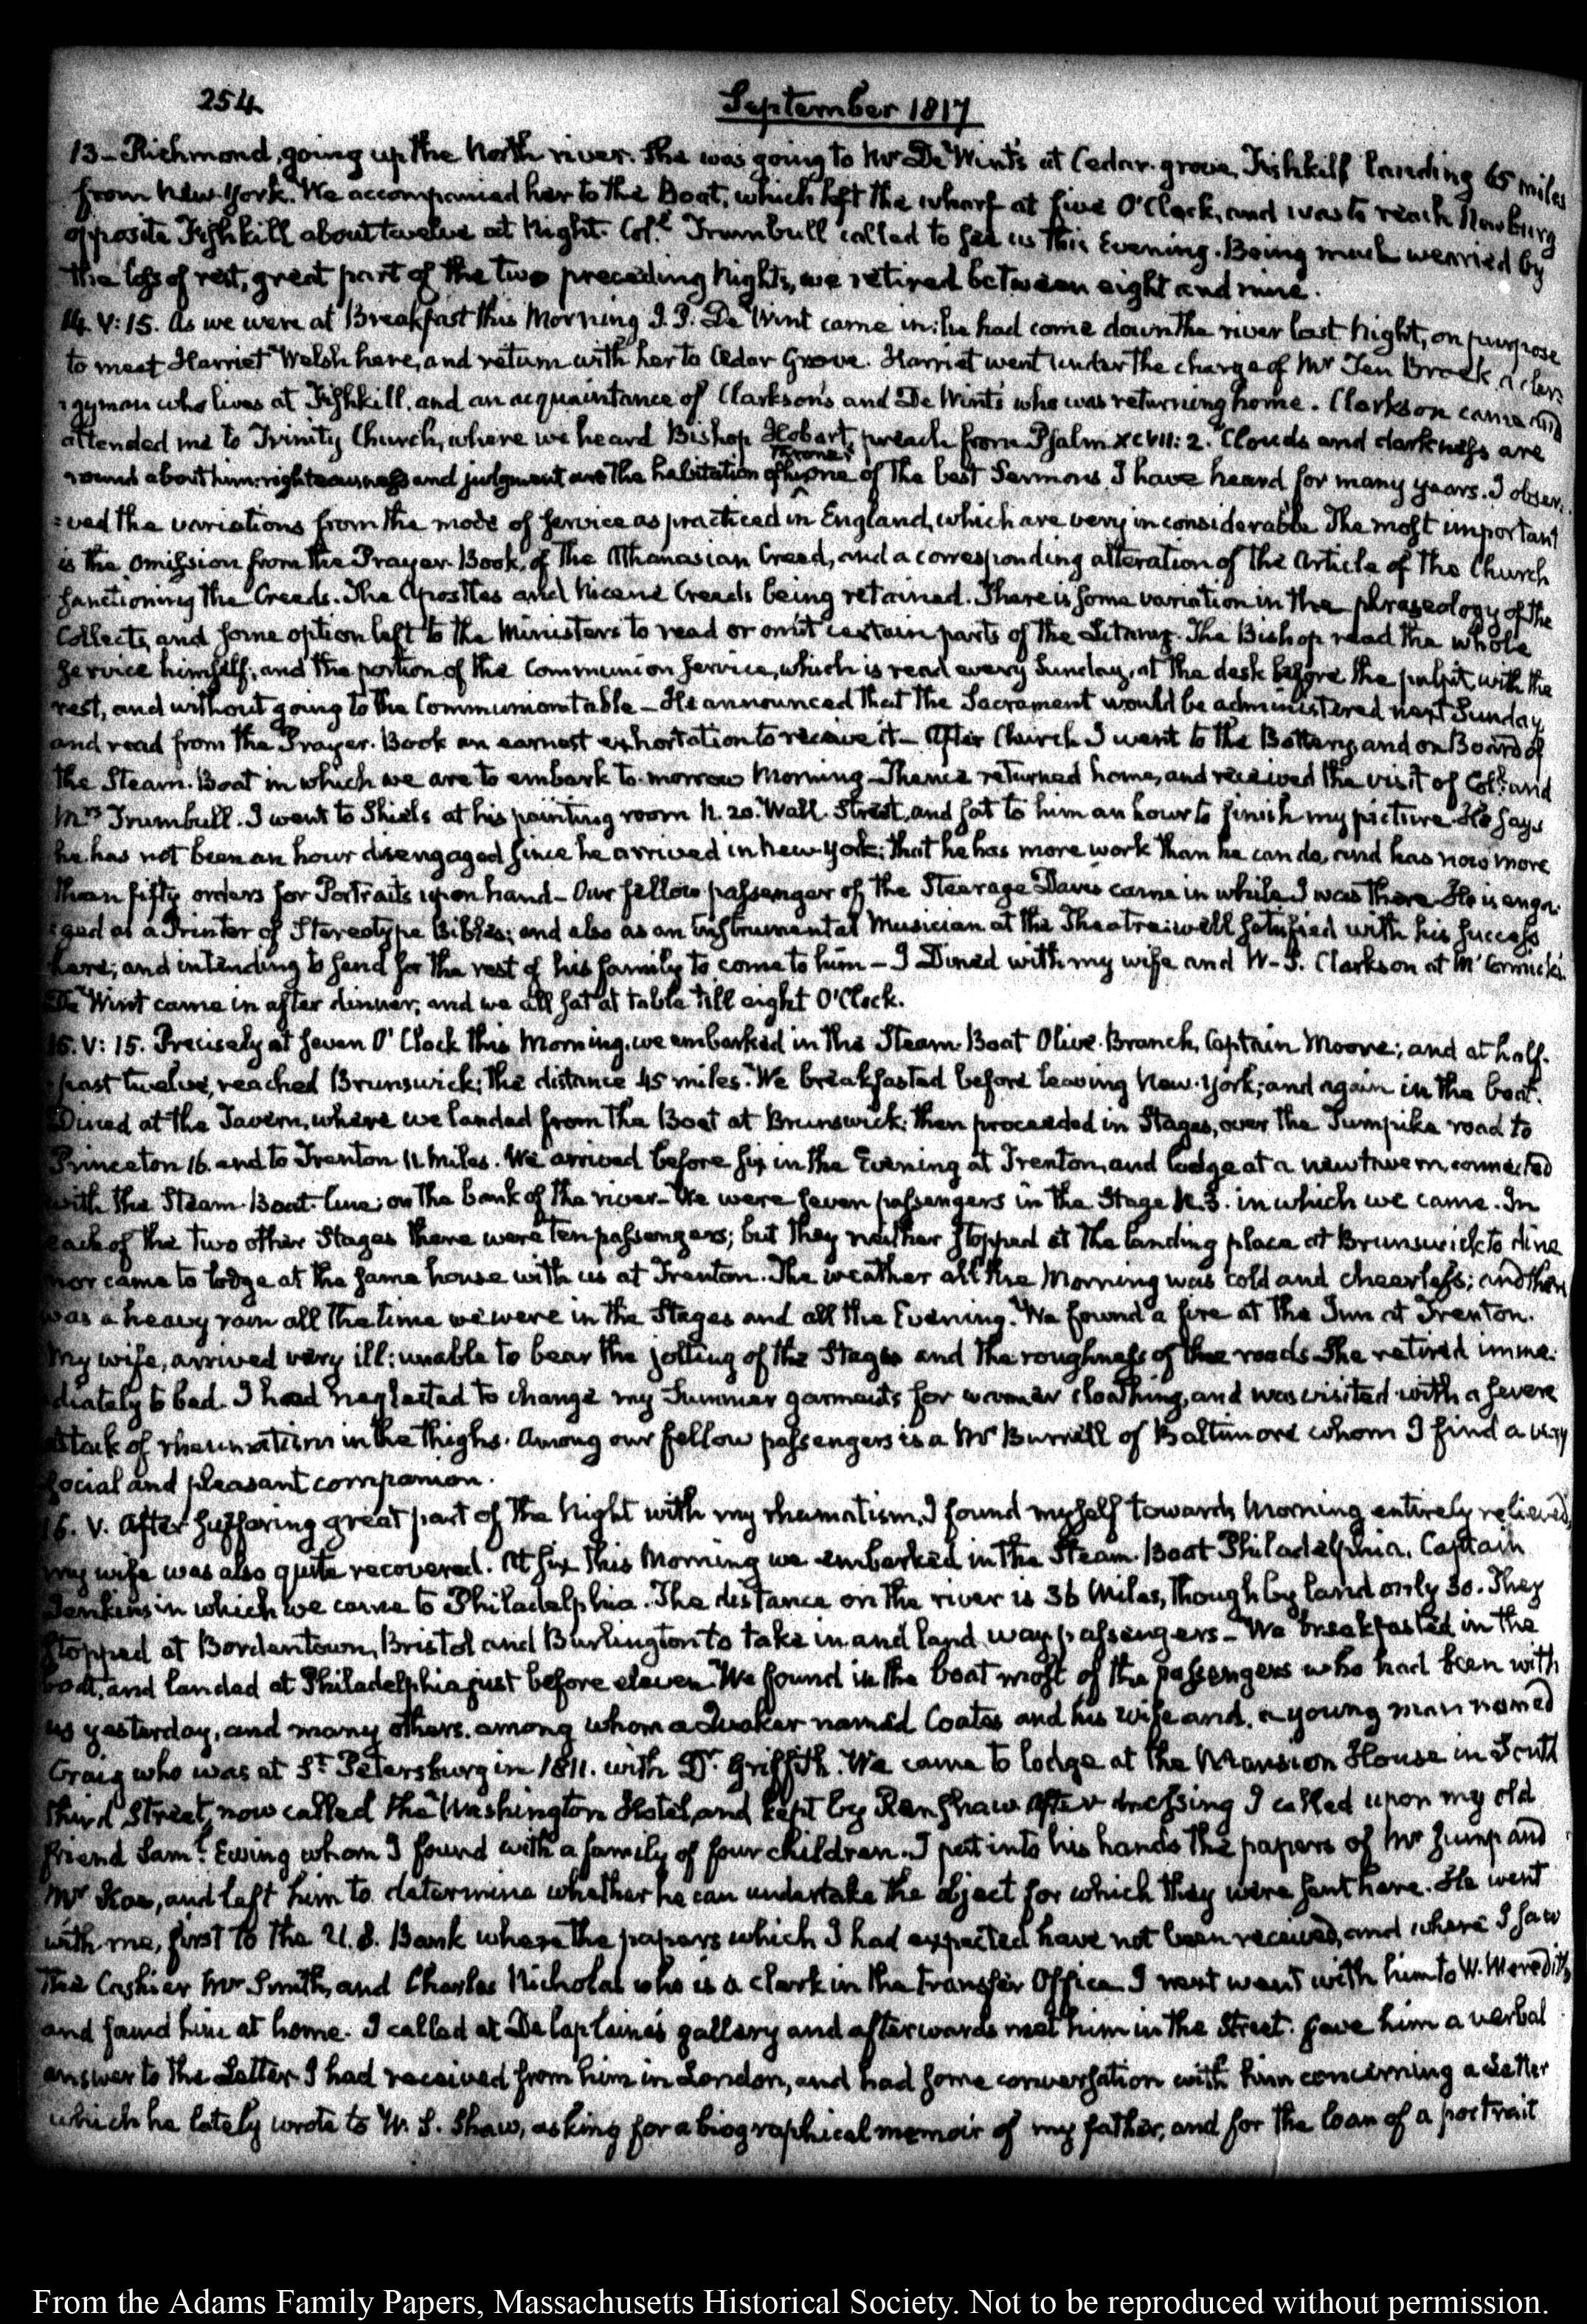 254
September 1817
13 - Richmond, going up the North river. She was going to Mr De Wint's at Cedar-grove, Fishkill landing 65 miles
from New-York. We accompanied her to the Boat, which left the wharf at five O'Clock, and was to reach Newburg
opposite Fishkill about twelve at Night. Col.l Trumbull called to see us this Evening. Being much wearied by
the loss of rest, great part of the two preceding Nights, we retired between eight and nine.
14. V: 15. As we were at Breakfast this Morning J. P. De Wint came in: he had come down the river last Night, on purpose
to meet Harriet Welsh here, and return with her to Cedar Grove. Harriet went under the charge of Mr Ten Broek a cler-
-gyman who lives at Fishkill, and an acquaintance of Clarkson's and De Wint's who was returning home. Clarkson came and
attended me to Trinity Church, where we heard Bishop Hobart, preach from Psalm XCVII: 2. Clouds and darkness are
round about him: righteousness and judgment are the habitation of his throne, one of the best Sermons I have heard for many years. I obser-
-ved the variations from the mode of service as practiced in England, which are very inconsiderable. The most important
is the omission from the Prayer-Book, of the Athanasian Creed, and a corresponding alteration of the Article of the Church
sanctioning the Creeds. The Apostles and Nicene Creeds being retained. There is some variation in the phraseology of the
Collects, and some option left to the Ministers to read or omit certain parts of the Litany. The Bishop read the whole
service himself, and the portion of the Communion service, which is read every Sunday, at the desk before the pulpit with the
rest, and without going to the Communion table - He announced that the Sacrament would be administered next Sunday,
and read from the Prayer-Book an earnest exhortation to receive it - After Church I went to the Battery, and on Board of
the Steam-Boat in which we are to embark to-morrow Morning - Thence returned home, and received the visit of Col.l and
Mrs Trumbull. I went to Shiels at his painting room N. 20. Wall-Street, and sat to him an hour to finish my picture. He says
he has not been an hour disengaged since he arrived in New-York; that he has more work than he can do, and has now more
than fifty orders for Portraits upon hand - Our fellow passenger of the Steerage Davis came in while I was there. He is enga-
-ged as a Printer of Stereotype Bibles; and also as an Instrumental Musician at the Theatre: well satisfied with his success
here; and intending to send for the rest of his family to come to him - I Dined with my wife and W. S. Clarkson at
De Wint came in after dinner; and we all sat at table till eight O'Clock.
15. V: 15. Precisely at seven O'Clock this Morning, we embarked in the Steam-Boat Olive-Branch, Captain Moore; and at half-
-past twelve, reached Brunswick; the distance 45 miles. We breakfasted before leaving New-York; and again in the boat.
Dined at the Tavern, where we landed from the Boat at Brunswick; then proceeded in Stages, over the Turnpike road to
Princeton 16. and to Trenton 11 miles. We arrived before six in the Evening at Trenton, and lodge at a new tavern, connected
with the Steam-Boat-line; on the bank of the river - We were seven passengers in the Stage N. 3. in which we came. In
each of the two other Stages there were ten passengers; but they neither stopped at the landing place at Brunswick to dine
nor came to lodge at the same house with us at Trenton. The weather all the Morning was cold and cheerless; and there
was a heavy rain all the time we were in the Stages and all the Evening. We found a fire at the Inn at Trenton.
My wife, arrived very ill: unable to bear the jolting of the Stages and the roughness of the roads. She retired imme-
diately to bed. I had neglected to change my Summer garments for warmer cloathing, and was visited with a severe
attack of rheumatism in the thighs. Among our fellow passengers is a Mr Burrell of Baltimore whom I find a very
social and pleasant companion.
16. V. After suffering great part of the Night with my rhumatism, I found myself towards Morning entirely relieved,
my wife was also quite recovered. At six this Morning we embarked in the Steam-Boat Philadelphia, Captain
Jenkins in which we came to Philadelphia. The distance on the river is 36 Miles, though by land only 30. They
stopped at Bordentown, Bristol and Burlington to take in and land way passengers - We breakfasted in the
boat, and landed at Philadelphia just before eleven. We found in the boat most of the passengers who had been with
us yesterday, and many others, among whom a Quaker named Coates and his wife and, a young man named
Craig who was at St Petersburg in 1811. with Dr Griffith. We came to lodge at the Mansion House in South
third Street, now called the Washington Hotel, and kept by Renshaw. After dressing I called upon my old
friend Sam.l Ewing whom I found with a family of four children. I put into his hands the papers of Mr and
Mr and left him to determine whether he can undertake the object for which they were sent here. He went
with me, first to the U.S. Bank where the papers which I had expected have not been received, and where I saw
the Cashier Mr Smith, and Charles Nicholas who is a clerk in the transfer Office. I next went with him to W. Meredith
and found him at home. I called at Delaplaine's gallery and afterwards met him in the Street. Gave him a verbal
answer to the Letter I had received from him in London, and had some conversation with him concerning a Letter
which he lately wrote to W. S. Shaw, asking for a biographical memoir of my father, and for the loan of a portrait
From the Adams Family Papers, Massachusetts Historical Society. Not to be reproduced without permission.